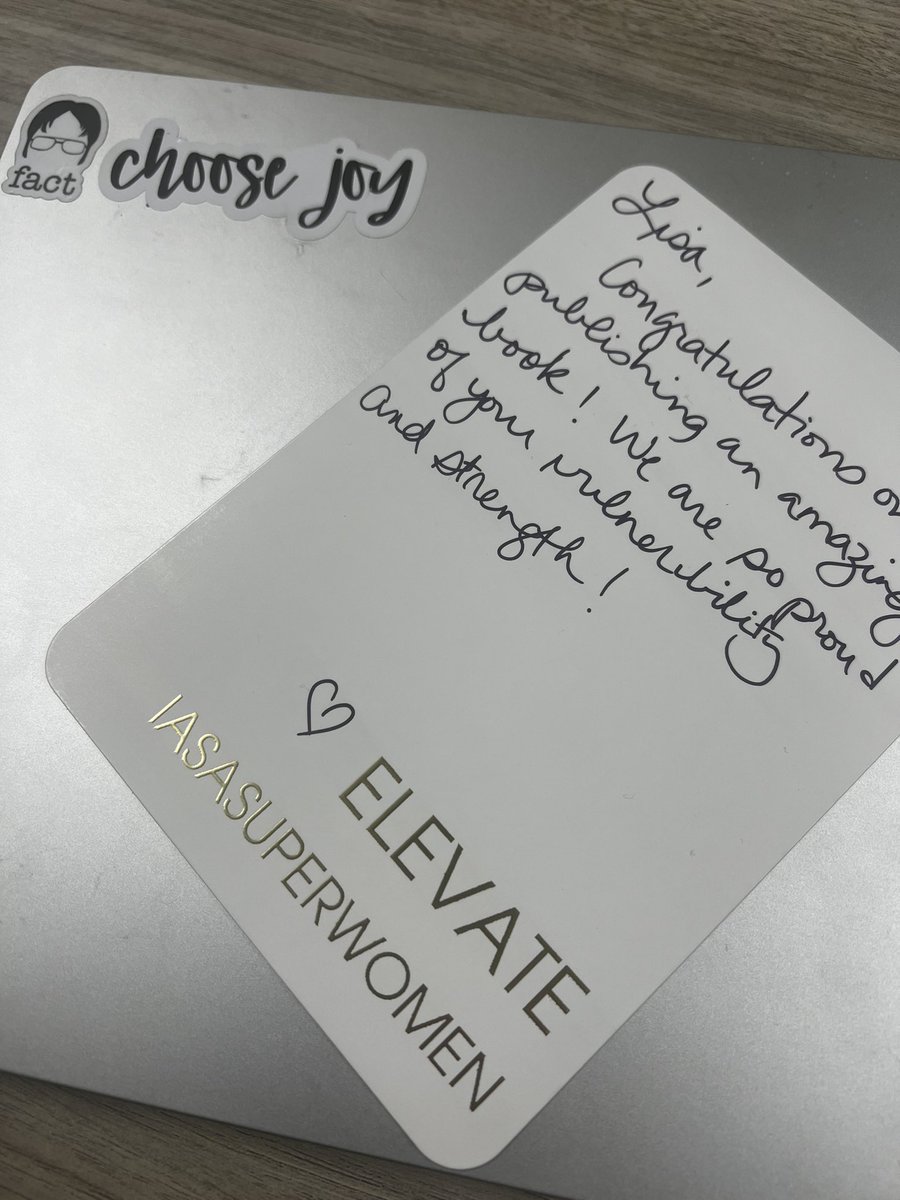 fact
choose joy
Lisa,
Congratulations on
publishing an amazing
book! We are so proud
of you vulnerability
and strength!
ELEVATE
IASASUPERWOMEN